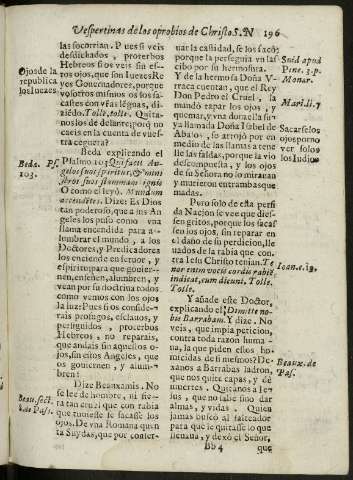 Vespertinas de los oprobios de Christo S. N 196
las socorrian. Pues si veis
desdichados, proterbos
Hebreos si os veis sin es-
tos ojos, que son Iuezes Re
yes Governadores, porque
vosotros mismos os los sa-
castes con vras léguas, di-
ziédo. Tolle, tolle. Quita-
nos los de delante, porq̃ no
caeis en la cuenta de vues-
tra ceguera?
Ojos de la
republica
los Iuezes.
Beda explicando el
Psalmo 103 Qui facit An-
gelos suos spiritus, & mini
stros suos flammam ignis
O como el leyò. Mundum
accendites. Dize: Es Dios
tan poderoso, que a sus An
geles los puso como vna
llama encendida para a-
lumbrar el mundo, a los
Doctores, y Predicadores
los enciende en feruor, y
espiritu para que gouier-
nen, enseñen, alumbren, y
vean por su doctrina todos
como vemos con los ojos
la luz: Pues si os conside-
rais profugos, esclauos, y
perseguidos, proterbos
Hebreos, no reparais,
que andais sin aquellos o-
jos, sin estos Angeles, que
os gouiernen, y alum-
bren?
Beda. Ps.
103.
Dize Beauxamis. No
se lee de hombre, ni fie-
ra tan cruel que con rabia
que tuuiesse se sacasse los
ojos. De vna Romana quẽta
Suydas, que por conser-
uar la castidad, se los sacò;
porque la perseguia vn las
cibo por su hermosura.
Y de la hermosa Doña V-
rraca cuentan, que el Rey
Don Pedro el Cruel, la
mandò rapar los ojos, y
quemar, y vna donzella su
ya llamada Doña Isabel de
se arrojò por en
medio de las llamas a tene
lla las ropas, porque la viò
descompuesta, y los ojos
de su Señora no lo miraran
y murieron entrambas que
madas.
Suid apud
Pine. 3. p.
Monar.
Pero solo de esta perfi
da Nacion se vee que dies-
sen gritos, porque los sacas
sen los ojos, sin reparar en
el daño de su perdicion, lle
uados de la rabia que con-
tra Iesu Christo tenian. Te
nor enim vocis cordis rabiẽ
indicat, cum dicunt. Tolle.
Tolle.
Sacarse los
ojos por no
ver solo
los Iudios
Ioan. c. 19.
Y añade este Doctor,
explicando el Dimitte no-
bis Barrabam. Y dize. No
veis, que impia peticion,
contra toda razon huma-
na, la que piden estos ho-
micidas de si mesmos? De-
xanos a Barrabas ladron,
que nos quite capas, y dè
muertes. Quitanos a Ie-
sus, que no sabe sino dar
almas, y vidas. Quien
jamas buscò al salteador
para que le quitasse lo que
lleuaua, y dexò el Señor,
Beaux. de
Pas.
Bb 4 que